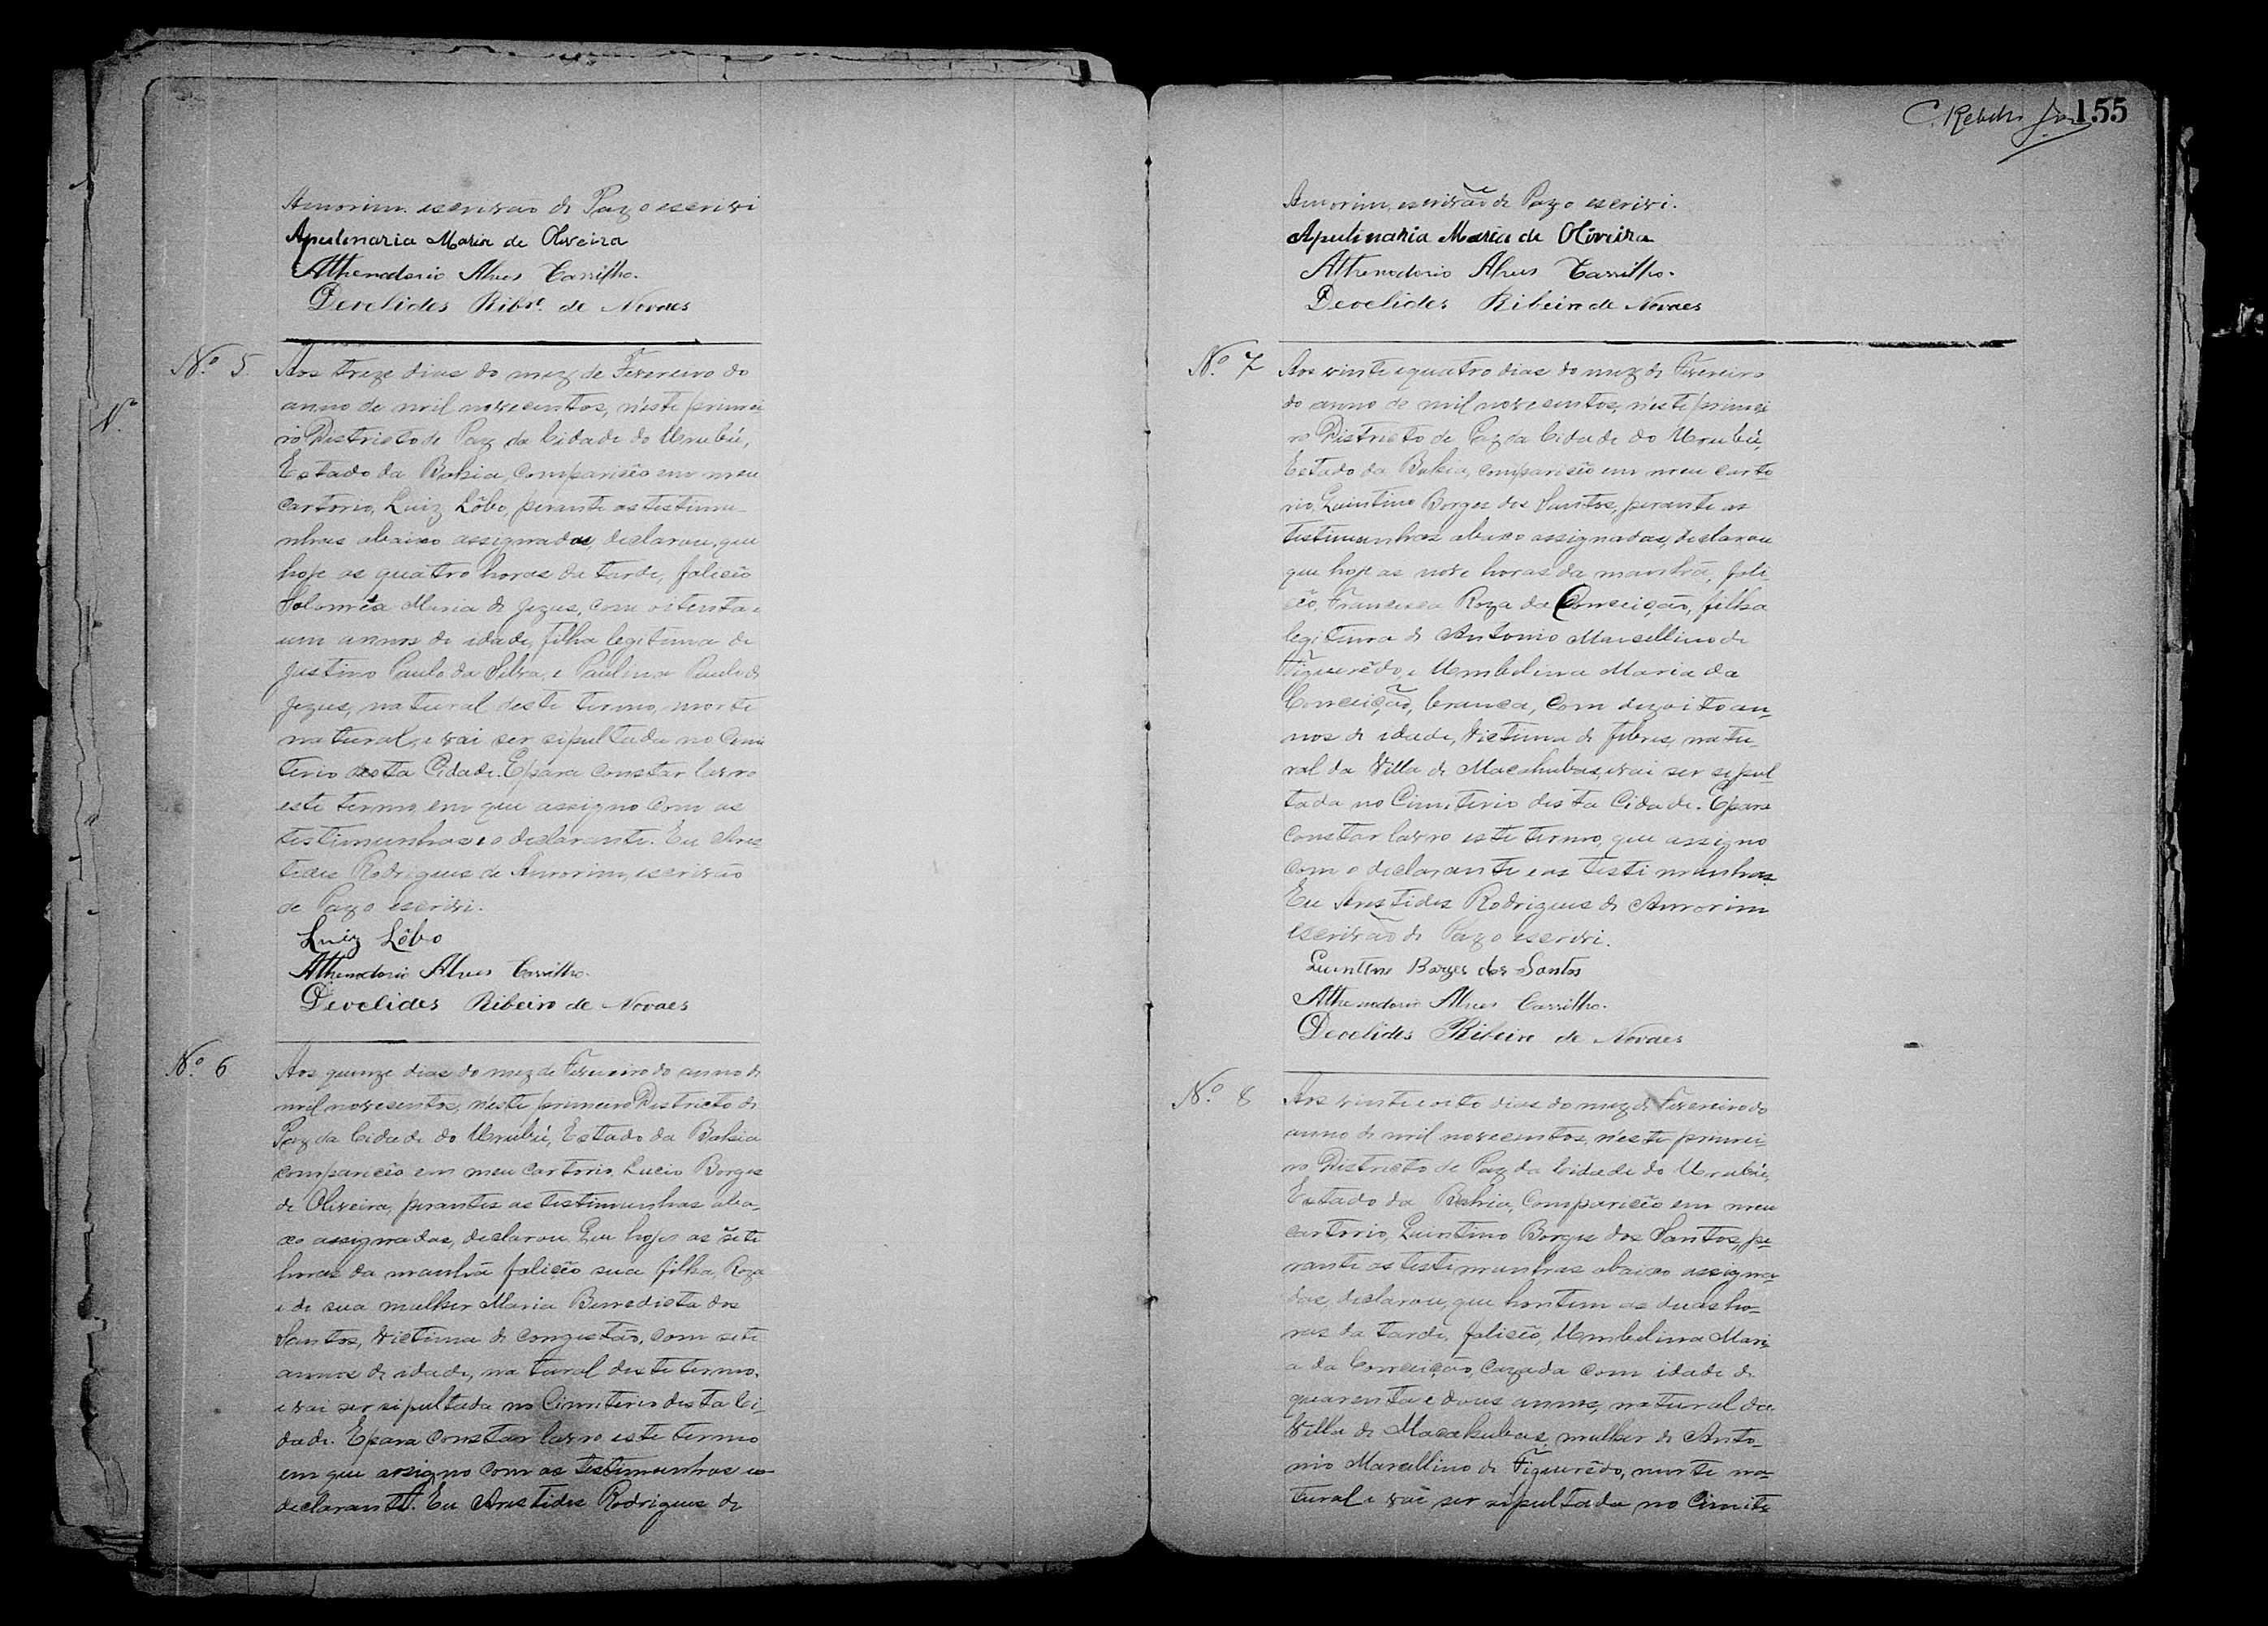 Amorim escrivão de Paz o escrivi
Apulinaria Maria de Oliveira
Athenodorio Alves Carrilho.
Deoclides Ribrº. de Novaes
Nº. 5 Aos treze dias do mez de Fevereiro do
anno de mil novecentos, n'este primei
ro Districto de Paz da Cidade do Urubú,
Estado da Bahia, compariceo em meu
cartorio, Luiz Lôbo, perante as testimu-
nhas abaixo assignadas, declarou, que
hoje as quatro horas da tarde, faliceo
Solomea Maria de Jezus, com oitenta e
um annos de idade, filha legitima de
Justino Paulo da Silva, e Paulina Paula de
Jezus, natural deste termo, morte
natural, e vai ser sipultada no Cimi
terio desta Cidade. E para constar lavro
este termo, em que assigno com as
testimunhas e o declarante. Eu Aris
tides Rodrigues de Amorim, escrivão
de Paz o escrivi.
Luiz Lôbo
Athenodorio Alves Carrilho.
Deoclides Ribeiro de Novaes
Nº. 6 Aos quinze dias do mez de Fevereiro do anno de
mil novecentos, n'este primeiro Districto de
Paz da Cidade do Urubú, Estado da Bahia
compariceo em meu cartorio Lucio Borges
de Oliveira, perantes as testimunhas aba-
xo assignadas, declarou Que hoje as sete
horas da manhã faliceo sua filha, Roza
e de sua mulher Maria Benedicta dos
Santos, victima de congestão, com sete
annos de idade, natural deste termo,
e vai ser sipultada no Cimiterio desta Ci-
dade. E para constar lavro este termo
em que assigno com as testimunhas e o
declarante. Eu Aristides Rodrigues de
C. Rebello 155
Amorim, escrivão de Paz o escrivi.
Apulinaria Maria de Oliveira
Athenodorio Alves Carrilho.
Deoclides Ribeiro de Novaes
Nº. 7 Aos vinte e quatro dias do mez de Fevereiro
do anno de mil novecentos, n'este primei
ro Districto de Paz da Cidade do Urubú,
Estado da Bahia, compariceo em meu carto
rio, Quintino Borges dos Santos, perante as
testimunhas abaxo assignadas, declarou
que hoje as nove horas da manhã, fali-
ceo, Francisca Roza da Conceição, filha
legitima de Antonio Marcellino de
Figuerêdo, e Umbelina Maria da
Conceição, branca, com dezoito an-
nos de idade, victima de febres, natu-
ral da Villa de Macahubas, e vai ser sepul-
tada no Cimiterio desta Cidade. E para
constar lavro este termo, que assigno
com o declarante e as testimunhas.
Eu Aristides Rodrigues de Amorim
escrivão de Paz o escrivi.
Quintino Borges dos Santos
Athenodorio Alves Carrilho.
Deoclides Ribeiro de Novaes
Nº. 8 Aos vinte e oito dias do mez de Fevereiro do
anno de mil novecentos, n'este primei-
ro Districto de Paz da Cidade do Urubú,
Estado da Bahia, compariceo em meu
cartorio, Quintino Borges dos Santos, pe-
rante as testimunhas abaixo assigna-
das, declarou, que hontem as duas ho-
ras da tarde, faliceo, Umbelina Mari-
a da Conceição, cazada com idade de
quarenta e dous annos, natural da
Villa de Macahubas, mulher de Anto-
nio Marcellino de Figuerêdo, morte na-
tural e vai ser sipultada no Cimite-